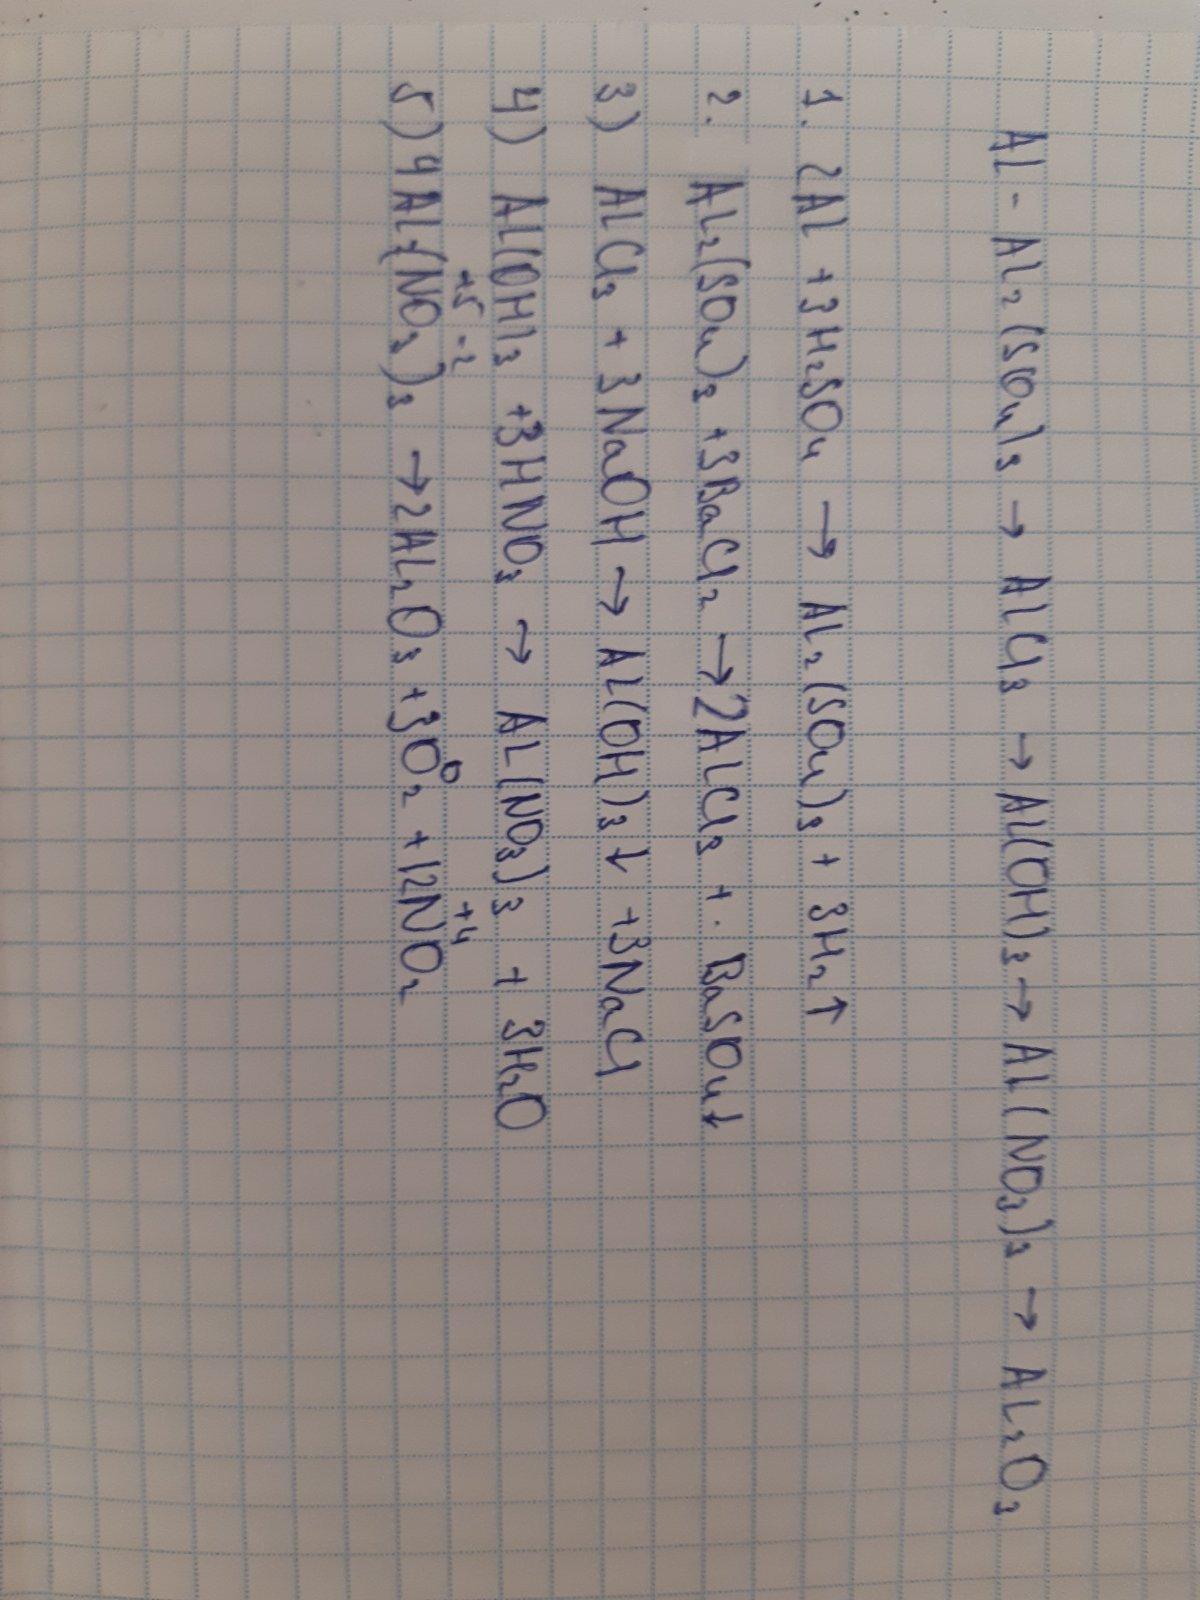 Al - Al₂(SO₄)₃ → AlCl₃ → Al(OH)₃ → Al(NO₃)₃ → Al₂O₃
1. 2Al + 3H₂SO₄ → Al₂(SO₄)₃ + 3H₂↑
2. Al₂(SO₄)₃ + 3BaCl₂ → 2AlCl₃ + . BaSO₄↓
3) AlCl₃ + 3NaOH → Al(OH)₃↓ + 3NaCl
4) Al(OH)₃ + 3HNO₃ → Al(NO₃)₃ + 3H₂O
+5 -2 0 +4
5) 4Al(NO₃)₃ → 2Al₂O₃ + 3O₂ + 12NO₂